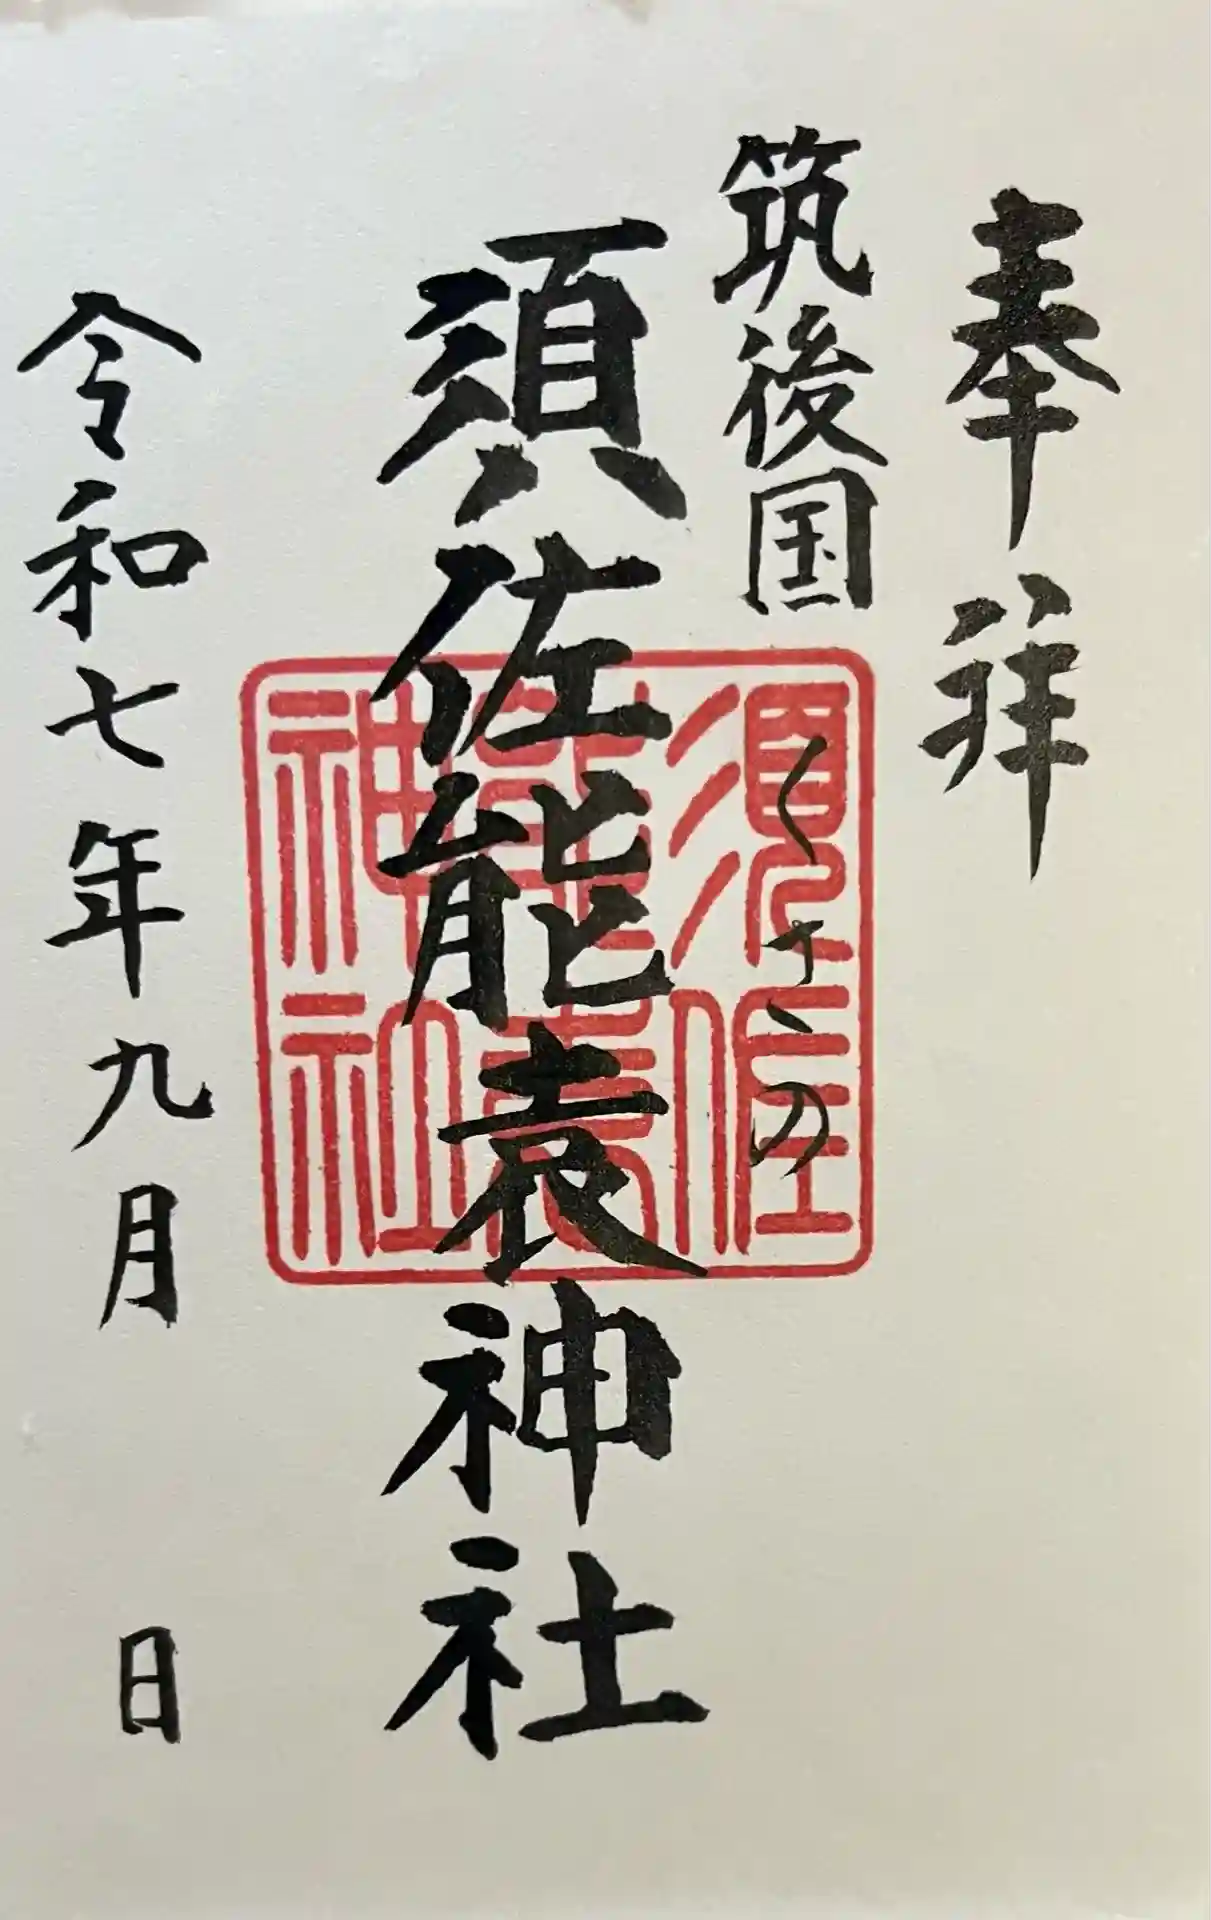 奉拝
筑後国 くさの
須佐能袁神社
令和七年九月 日
須佐
能袁
神社